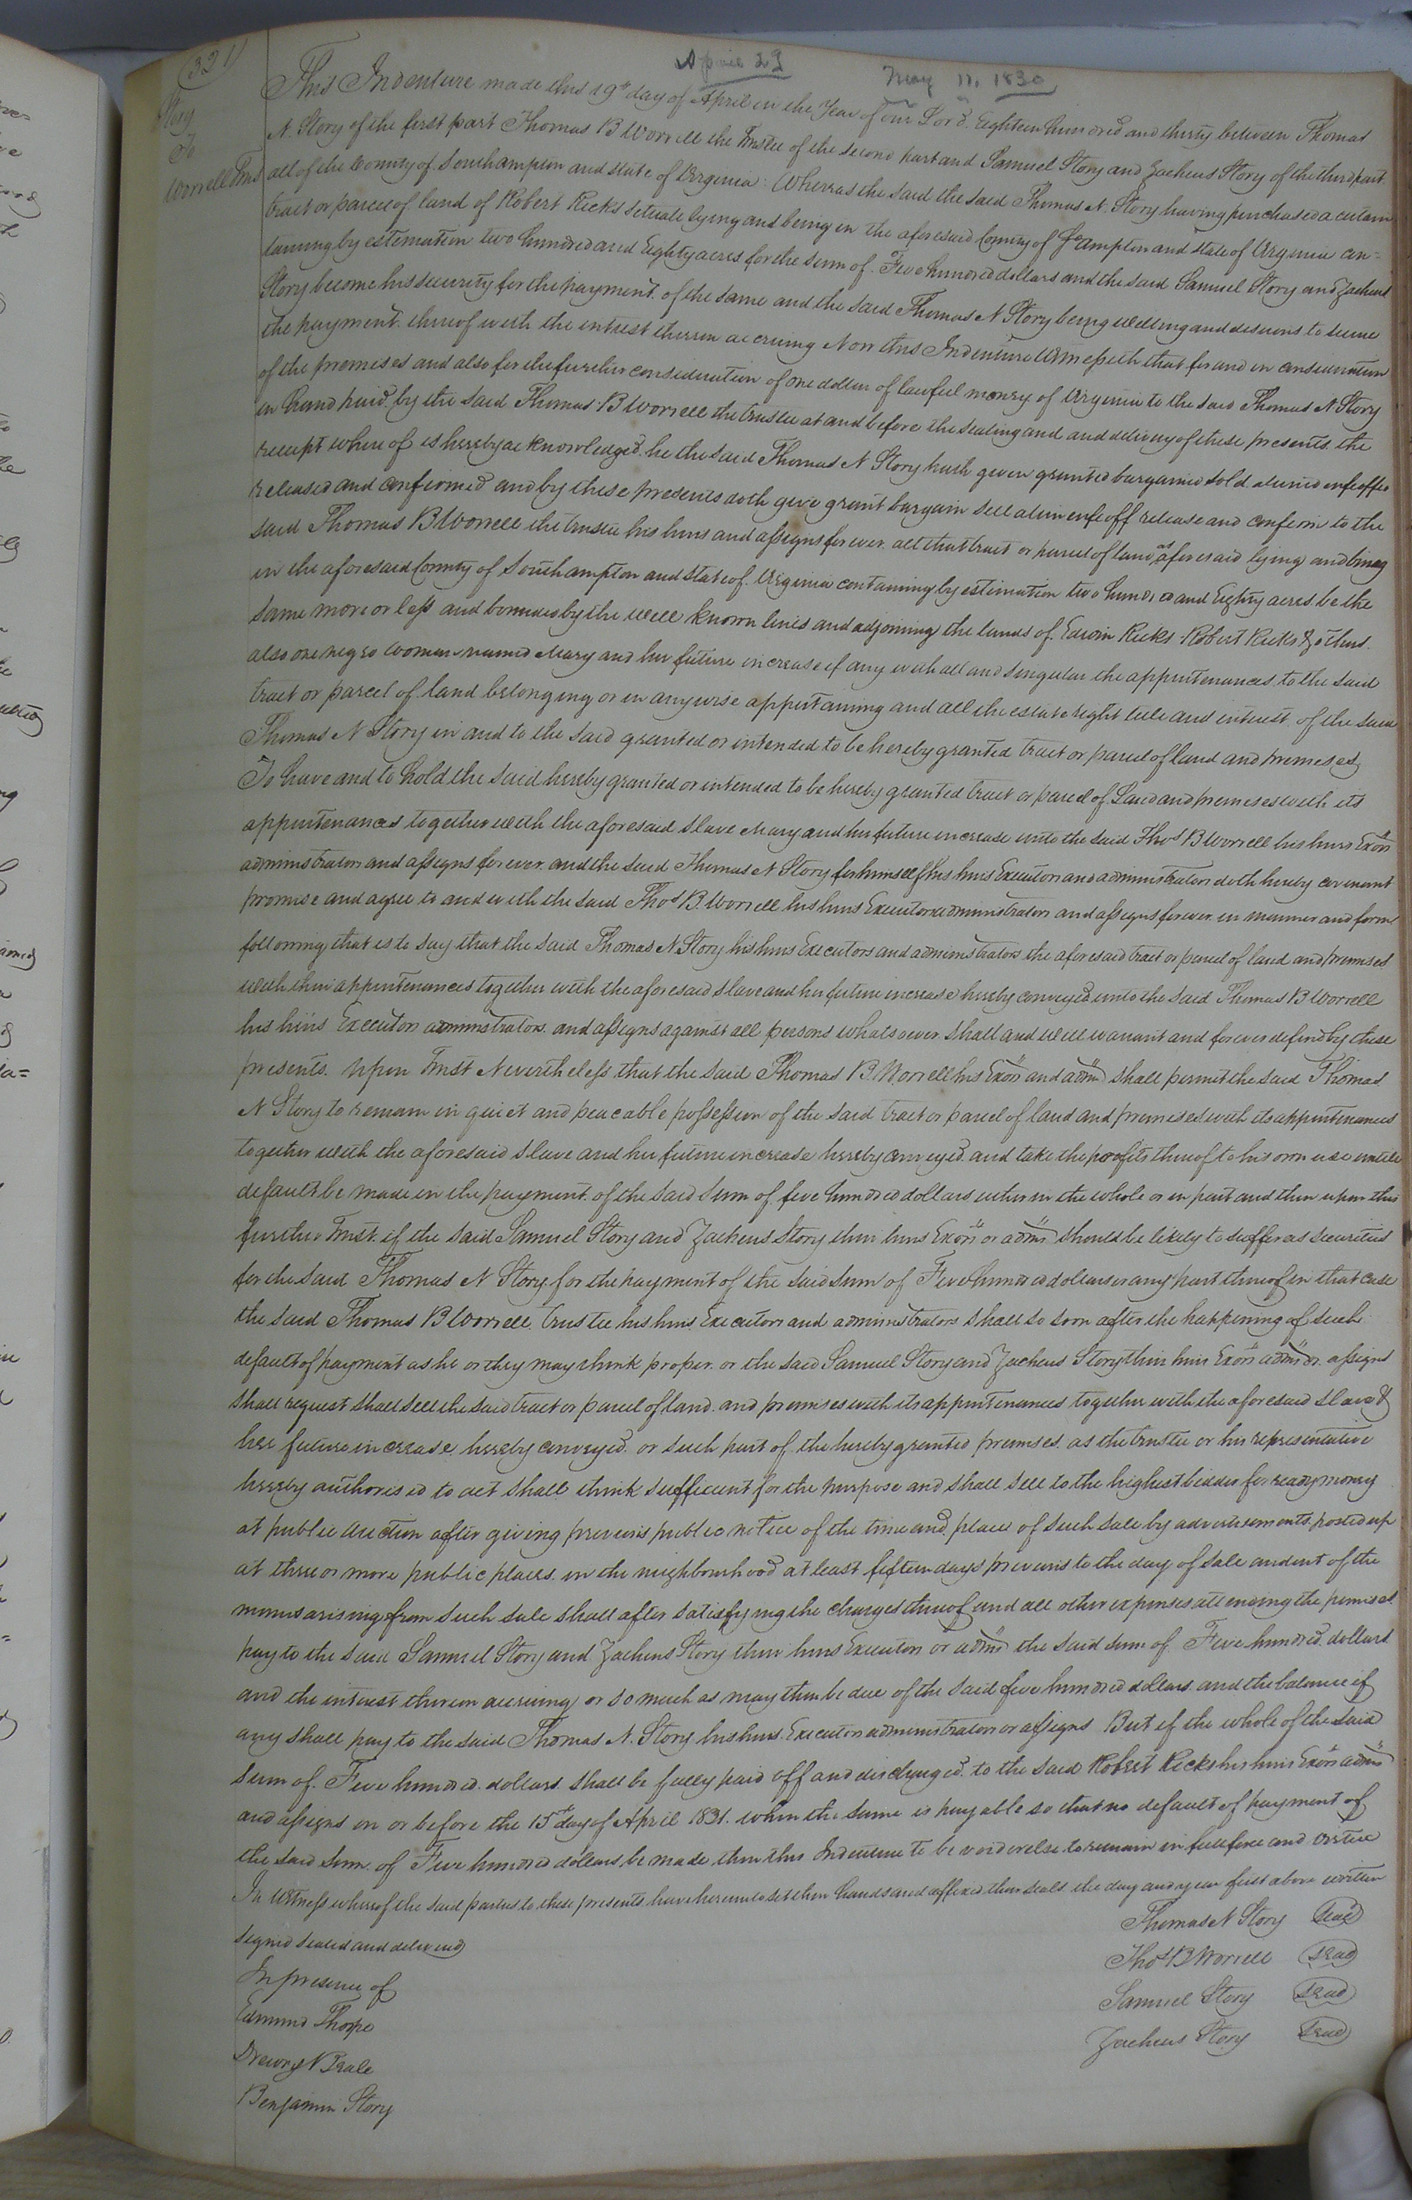 (321)
April 29
May 11, 1830
Story
To
Worrell Trus
This Indenture made this 19th day of April in the Year of our Lord Eighteen hundred and thirty between Thomas
N. Story of the first part Thomas B Worrell the Trustee of the second part and Samuel Story and Zacheus Story of the third part
all of the County of Southampton and state of Virginia: Whereas the said the said Thomas N. Story having purchased a certain
tract or parcel of land of Robert Ricks situate lying and being in the aforesaid County of S°ampton and state of Virginia con=
taining by estemation two hundred and Eighty acres for the sum of Five hundred dollars and the said Samuel Story and Zacheus
Story become his security for the payment of the same and the said Thomas N Story being willing and desirous to secure
the payment thereof with the intrest therein accruing Now this Indenture Witnesseth that for and in consideration
of the premises and also for the further consideration of one dollar of lawful money of Virginia to the said Thomas N Story
in hand paid by the said Thomas B Worrell the trustee at and before the sealing and and delivery of these presents the
receipt where of is hereby acknowledged he the said Thomas N Story hath given granted bargained sold aliened enfeoffed
released and confirmed and by these presents doth give grant bargain sell alien enfeoff release and confirm to the
said Thomas B Worrell the trustee his heirs and assigns forever all that tract or parcel of land as aforesaid lying and being
in the aforesaid County of Southampton and state of Virginia containing by estimation two hundred and Eighty acres be the
same more or less and bounded by the well known lines and adjoining the lands of Edwin Ricks Robert Ricks & others
also one negro Woman named Mary and her future increase if any with all and singular the appurtenances to the said
tract or parcel of land belonging or in any wise appertaining and all the estate right title and intrest of the said
Thomas N Story in and to the said granted or intended to be hereby granted tract or parcel of land and premises
To have and to hold the said hereby granted or intended to be hereby granted tract or parcel of Land and premises with its
appurtenances together with the aforesaid slave Mary and her future increase unto the said Thos B Worrell his heirs Exors
administrators and assigns forever and the said Thomas N Story for himself his heirs Executors and administrators doth hereby covenant
promise and agree to and with the said Thos B. Worrell his heirs Executors administrators and assigns forever in manner and form
following that is to say that the said Thomas N Story his heirs Executors and administrators the aforesaid tract or parcel of land and premises
with their appurtenances together with the aforesaid slave and her future increase hereby conveyed unto the said Thomas B Worrell
his heirs Executors administrators and assigns against all persons whatsoever shall and will warrant and forever defend by these
presents. Upon Trust Nevertheless that the said Thomas B Worrell his Exors and admrs shall permit the said Thomas
N Story to remain in quiet and peacable possession of the said tract or parcel of land and premises with its appurtenances
together with the aforesaid slave and her future increase hereby conveyed and take the profits thereof to his own use untill
default be made in the payment of the said sum of five hundred dollars either in the whole or in part and then upon this
further Trust if the said Samuel Story and Zacheus Story their heirs Exors or admrs should be likely to suffer as securities
for the said Thomas N Story for the payment of the said sum of Five hundred dollars or any part thereof in that case
the said Thomas B Worrell trustee his heirs Executors and administrators shall so soon after the happening of such
default of payment as he or they may think proper or the said Samuel Story and Zacheus Story their heirs Exors admrs or assigns
shall request shall sell the said tract or parcel of land and premises with its appurtenances together with the aforesaid slave &
her future increase hereby conveyed or such part of the hereby granted premises as the trustee or his representative
hereby authorised to act shall think sufficient for the purpose and shall sell to the highest bidder for ready money
at public auction after giving previous public notice of the time and place of such sale by advertisements posted up
at three or more public places in the neighbourhood at least fifteen days previous to the day of sale and out of the
monies arising from such sale shall after satisfying the charges thereof and all other expenses attending the premises
pay to the said Samuel Story and Zacheus Story their heirs Executors or admrs the said sum of Five hundred dollars
and the intrest therein accruing or so much as may then be due of the said five hundred dollars and the balance if
any shall pay to the said Thomas N. Story his heirs Executors administrators or assigns But if the whole of the said
sum of Five hundred dollars shall be fully paid off and discharged to the said Robert Ricks his heirs Exors admrs
and assigns on or before the 15th day of April 1831 when the same is payable so that no default of payment of
the said sum of Five hundred dollars be made then this Indenture to be void or else to remain in full force and virtue
In Witness whereof the said parties to these presents have hereunto set their hands and affixed their seals the day and year first above written
Signed sealed and delivered
In presence of
Edmund Thorpe
Drewry N Beale
Benjamin Story
Thomas N Story Seal
Thos B Worrell Seal
Samuel Story Seal
Zacheus Story Seal